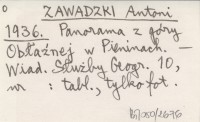 ZAWADZKI Antoni
1936. Panorama z góry
Obłaźnej w Pieninach. —
Wiad. Służby Geogr. 10,
nr : tabl., tylko fot.